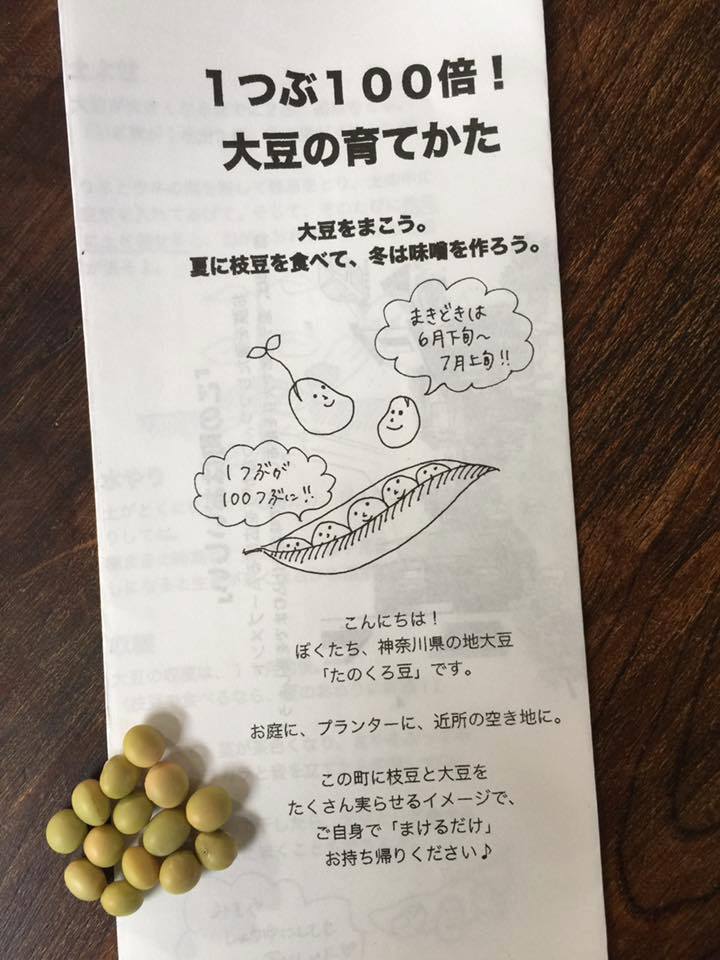 1つぶ100倍！
大豆の育てかた
大豆をまこう。
夏に枝豆を食べて、冬は味噌を作ろう。
まきどきは
6月下旬〜
7月上旬!!
1つぶが
100つぶに!!
こんにちは！
ぼくたち、神奈川県の地大豆
「たのくろ豆」です。
お庭に、プランターに、近所の空き地に。
この町に枝豆と大豆を
たくさん実らせるイメージで、
ご自身で「まけるだけ」
お持ち帰りください♪